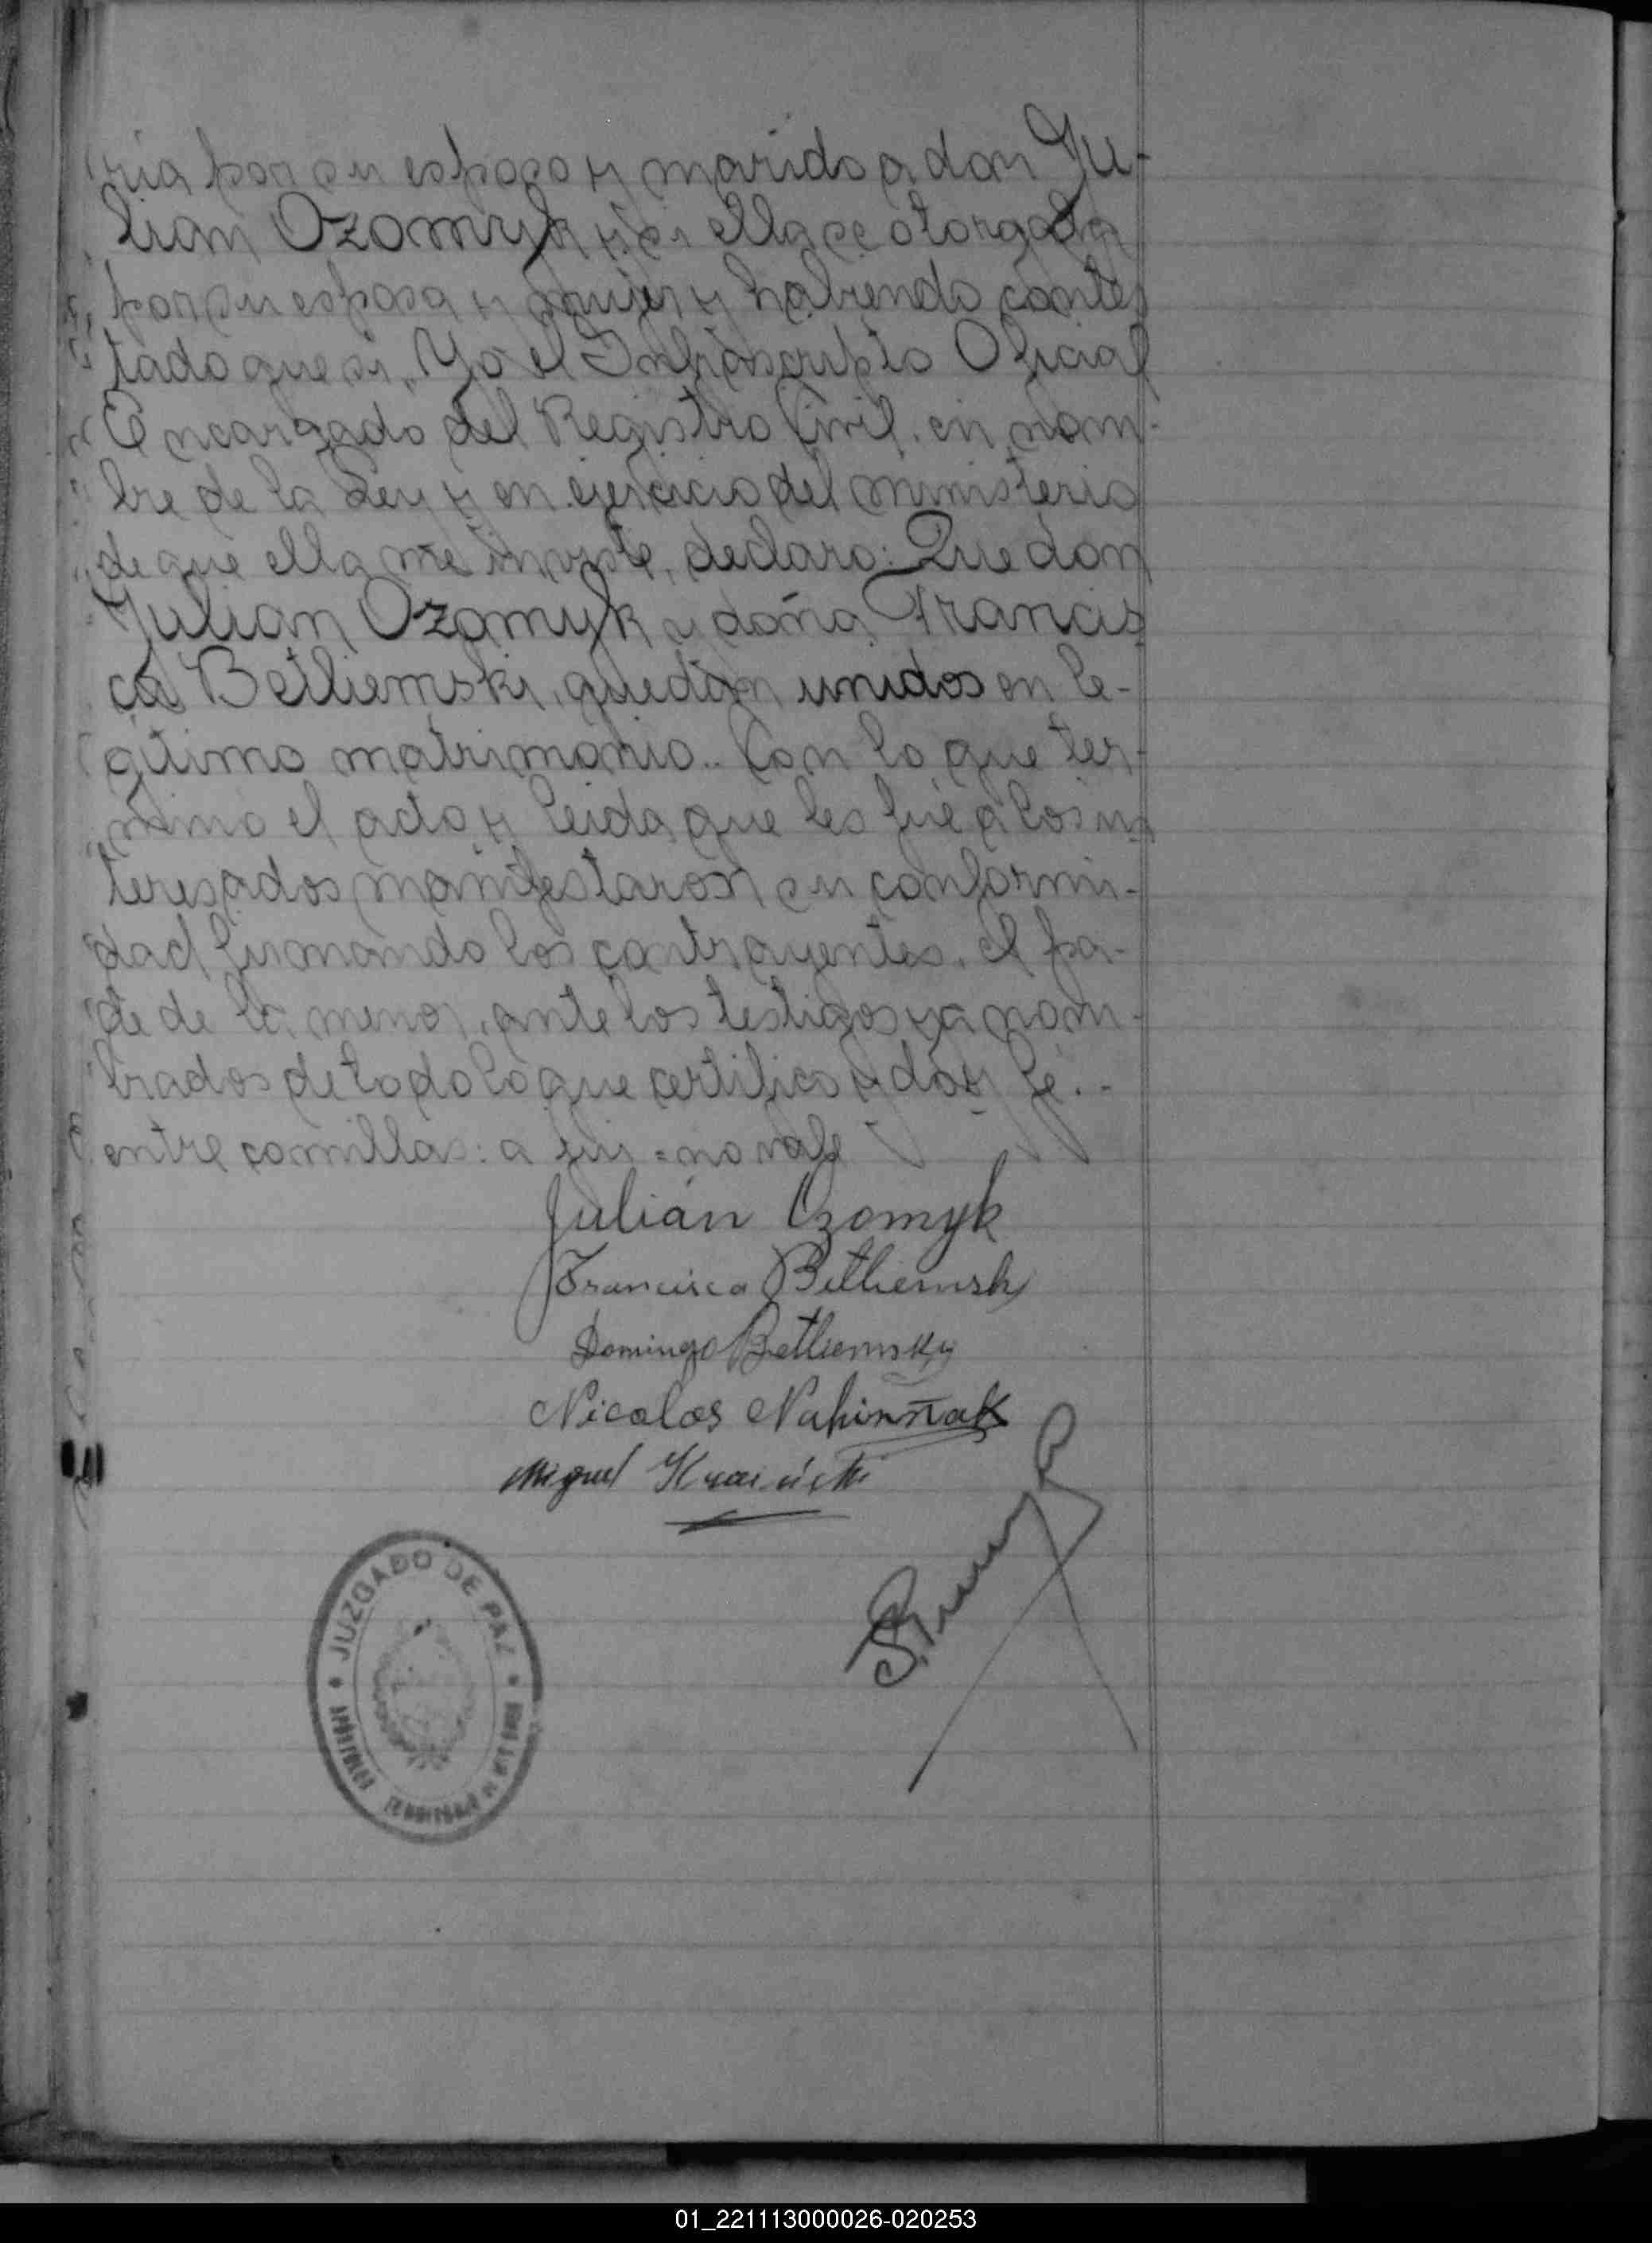 ria por su esposo y marido a don Ju-
lian Ozomyk y si ella se otorgaba
por su esposa y mujer y habiendo contes
tado que si, Yo el Infrascripto Oficial
Encargado del Registro Civil, en nom-
bre de la Ley y en ejercicio del ministerio
de que ella me inviste, declaro: Que don
Julian Ozomyk y doña Francis
ca Betliemski, quedan unidos en le-
gitimo matrimonio.. Con lo que ter-
mino el acto y leida que les fué a los in
teresados manifestaron su conformi-
dad firmando los contrayentes, el pa-
de de la menor, ante los testigos ya nom-
brados de todo lo que certifico y doy fé.-
entre comillas: a fin = no vale
Julián Ozomyk
Francisca Betliemsky
Domingo Betliemsky
Nicolas
Miguel
JUZGADO DE PAZ
01_221113000026-020253